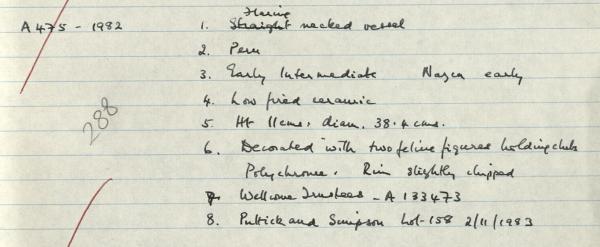 Flaring
A475 - 1982 1. Straight necked vessel
2. Peru
3. Early Intermediate Nazca early
4. Low fired ceramic
288
5. Ht 11cms, diam. 38.4 cms.
6. Decorated with two feline figures holding clubs
Polychrome. Rim slightly chipped
7. Wellcome Trustees - A 133473
8. Puttick and Simpson lot-158 2/11/1983